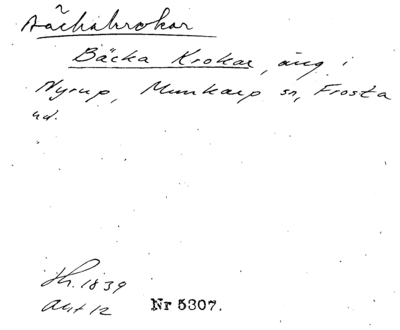 Bäcka Krokar, äng i
Nyrup, Munkarp sn, Frosta
hd.
Sk. 1839
akt 12 Nr 5307.